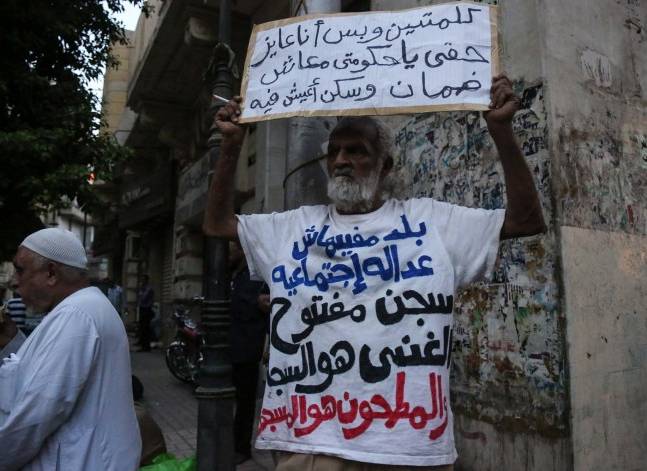 كلمتين وبس أنا عايز
حقى يا حكومتى معاش
ضمان وسكن أعيش فيه
بلد مفيهاش
عداله إجتماعيه
سجن مفتوح
الغنى هو السجا
والمطحون هو المسجو